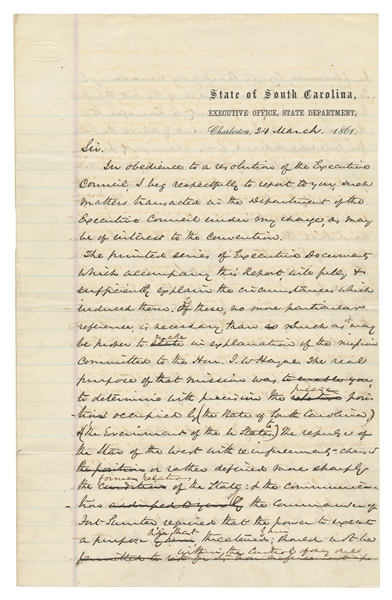 State of South Carolina,
EXECUTIVE OFFICE, STATE DEPARTMENT,
Charleston, 24 March 1861.
Sir.
In obedience to a resolution of the Executive
Council, I beg respectfully to report to you, such
matters transacted in the Department of the
Executive Council under my charge, as may
be of interest to the Convention.
The printed series of Executive Documents
which accompany this Report will fully &
sufficiently explain the circumstances which
induced them. Of these, no more particular
reference is necessary than so much as may
be proper to state in explanation of the mission
committed to the Hon. I. W. Hayne. The real
purpose of that mission was to enable you
to determine with precision the relative precise posi-
tions occupied by (the State of South Carolina,)
& (the Government of the U States.) The repulse of
the Star of the West with reinforcements
the position or rather defined more sharply
the conditions former relations of the State; & the communica-
tions addressed to you by the Commander of
Fort Sumter required that the power to execute
a purpose threatened, should not be
permitted to within the control of any one